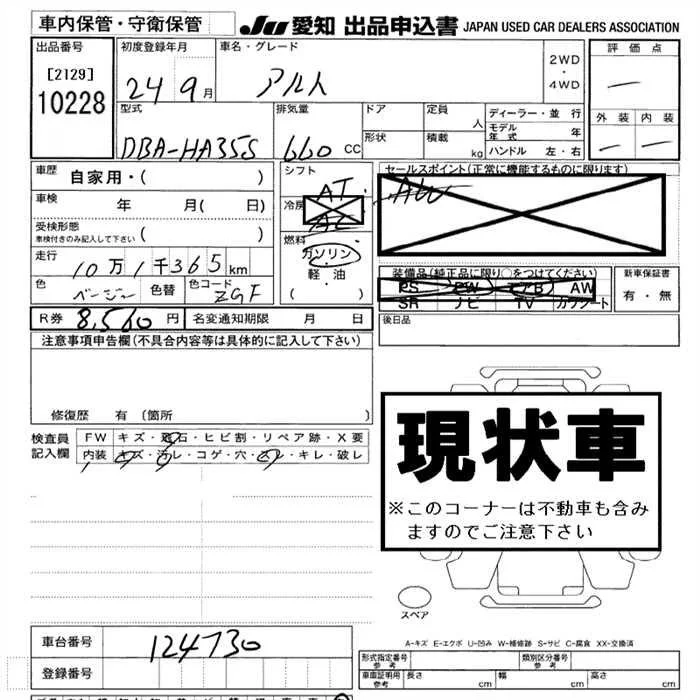 車内保管・守衛保管
JU 愛知 出品申込書 JAPAN USED CAR DEALERS ASSOCIATION
出品番号
[2129]
10228
初度登録年月
24 9月
車名・グレード
アルト
2WD
・
4WD
評価点
—
外装 内装
— —
型式
DBA-HA35S
排気量
660 CC
ドア
定員
人
形状
積載
kg
ディーラー・並 行
モデル年式 年
ハンドル 左・右
車歴 自家用・( )
車検 年 月( 日)
受検形態
車検付きのみ記入して下さい ( )
走行 10万1千365km
色 ベージュー 色替 色コード ZGF
シフト
AT
冷房
AC
燃料
ガソリン
軽・油
( )
セールスポイント(正常に機能するものに限ります)
AW
装備品(純正品に限り○をつけてください)
PS PW エアB AW
SR ナビ TV カワシート
新車保証書
有・無
R券 8,560円 名変通知期限 月 日
後日品
注意事項申告欄(不具合内容等は具体的に記入して下さい)
修復歴 有 [箇所 ]
検査員
記入欄
FW キズ・飛石・ヒビ割・リペア跡・X要
内装 キズ・汚レ・コゲ・穴・スレ・キレ・破レ
現状車
※このコーナーは不動車も含み
ますのでご注意下さい
スペア
A-キズ E-エクボ U-凹み W-補修跡 S-サビ C-腐食 XX-交換済
車台番号 124730
登録番号
形式指定番号
参考
類別区分番号
参考
車庫証明用
参考
長さ cm 幅 cm 高さ cm